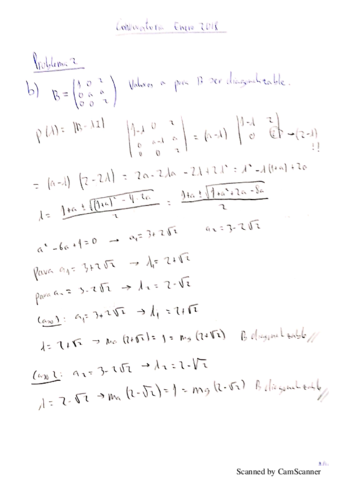 Convocatoria Enero 2018
Problema 2
b) B = (1 0 2 / 0 a a / 0 0 2) Valores a para B ser diagonalizable.
P(λ) = |B - λI| |1-λ 0 2 / 0 a-λ a / 0 0 2| = (a-λ) |1-λ 2 / 0 2| → (2-λ) !!
= (a-λ) (2-2λ) = 2a - 2λa - 2λ + 2λ² = λ² - λ(1+a) + 2a
a² - 6a + 1 = 0 → a₁ = 3+2√2 a₂ = 3-2√2
para a₁ = 3+2√2 → λ₁ = 2+√2
para a₂ = 3-2√2 → λ₂ = 2-√2
Caso 1: a₁ = 3+2√2 → λ₁ = 2+√2
λ = 2+√2 → ma (2+√2) = 1 = mg (2+√2) B diagonalizable //
Caso 2: a₂ = 3-2√2 → λ₂ = 2-√2
λ = 2-√2 → ma (2-√2) = 1 = mg (2-√2) B diagonalizable //
Scanned by CamScanner